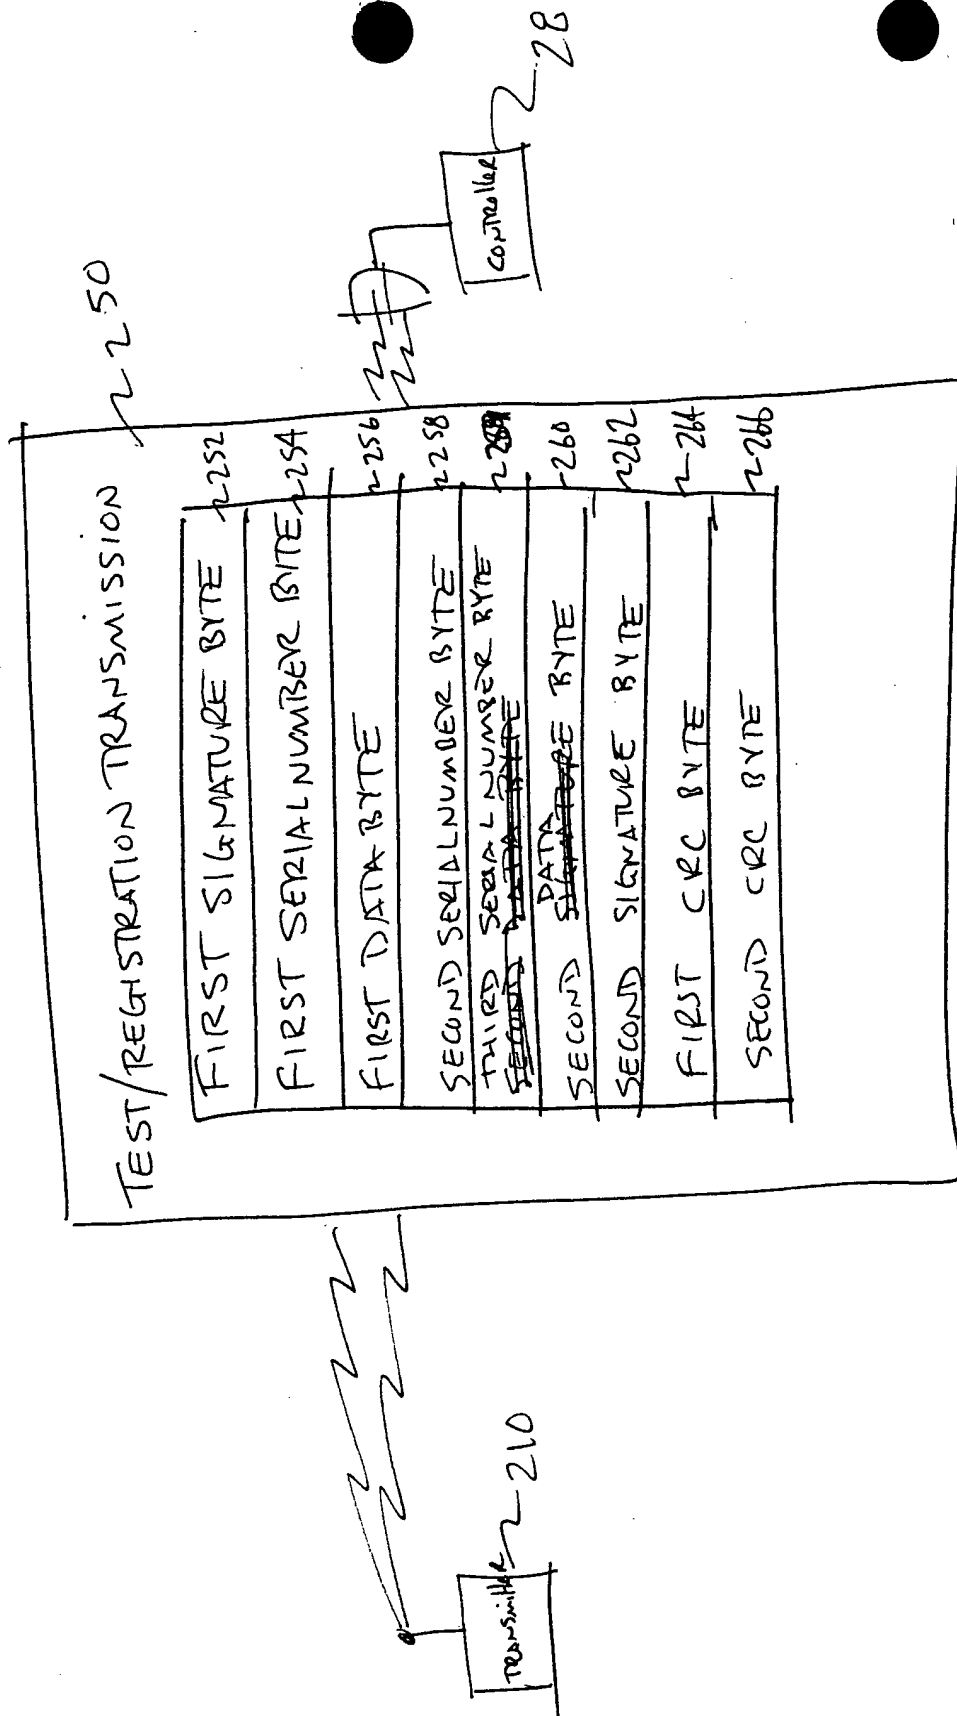 TEST/REGISTRATION TRANSMISSION
250
FIRST SIGNATURE BYTE 252
FIRST SERIAL NUMBER BYTE 254
FIRST DATA BYTE 256
SECOND SERIAL NUMBER BYTE 258
THIRD SERIAL NUMBER BYTE
SECOND DATA BYTE
DATA
SECOND SIGNATURE BYTE 260
SECOND SIGNATURE BYTE 262
FIRST CRC BYTE 264
SECOND CRC BYTE 266
TRANSMITTER 210
CONTROLLER 28